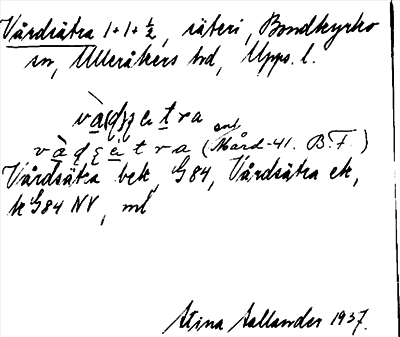 Vårdsätra 1+1+½, säteri, Bondkyrko
sn, Ulleråkers hd, Upps. l.
vàḍẓätra
vàḍẓätra (enl Mård -41. B.F.)
Vårdsätra bek, G84, Vårdsätra ek,
k G84 NV, ml
Stina Sallander 1937.